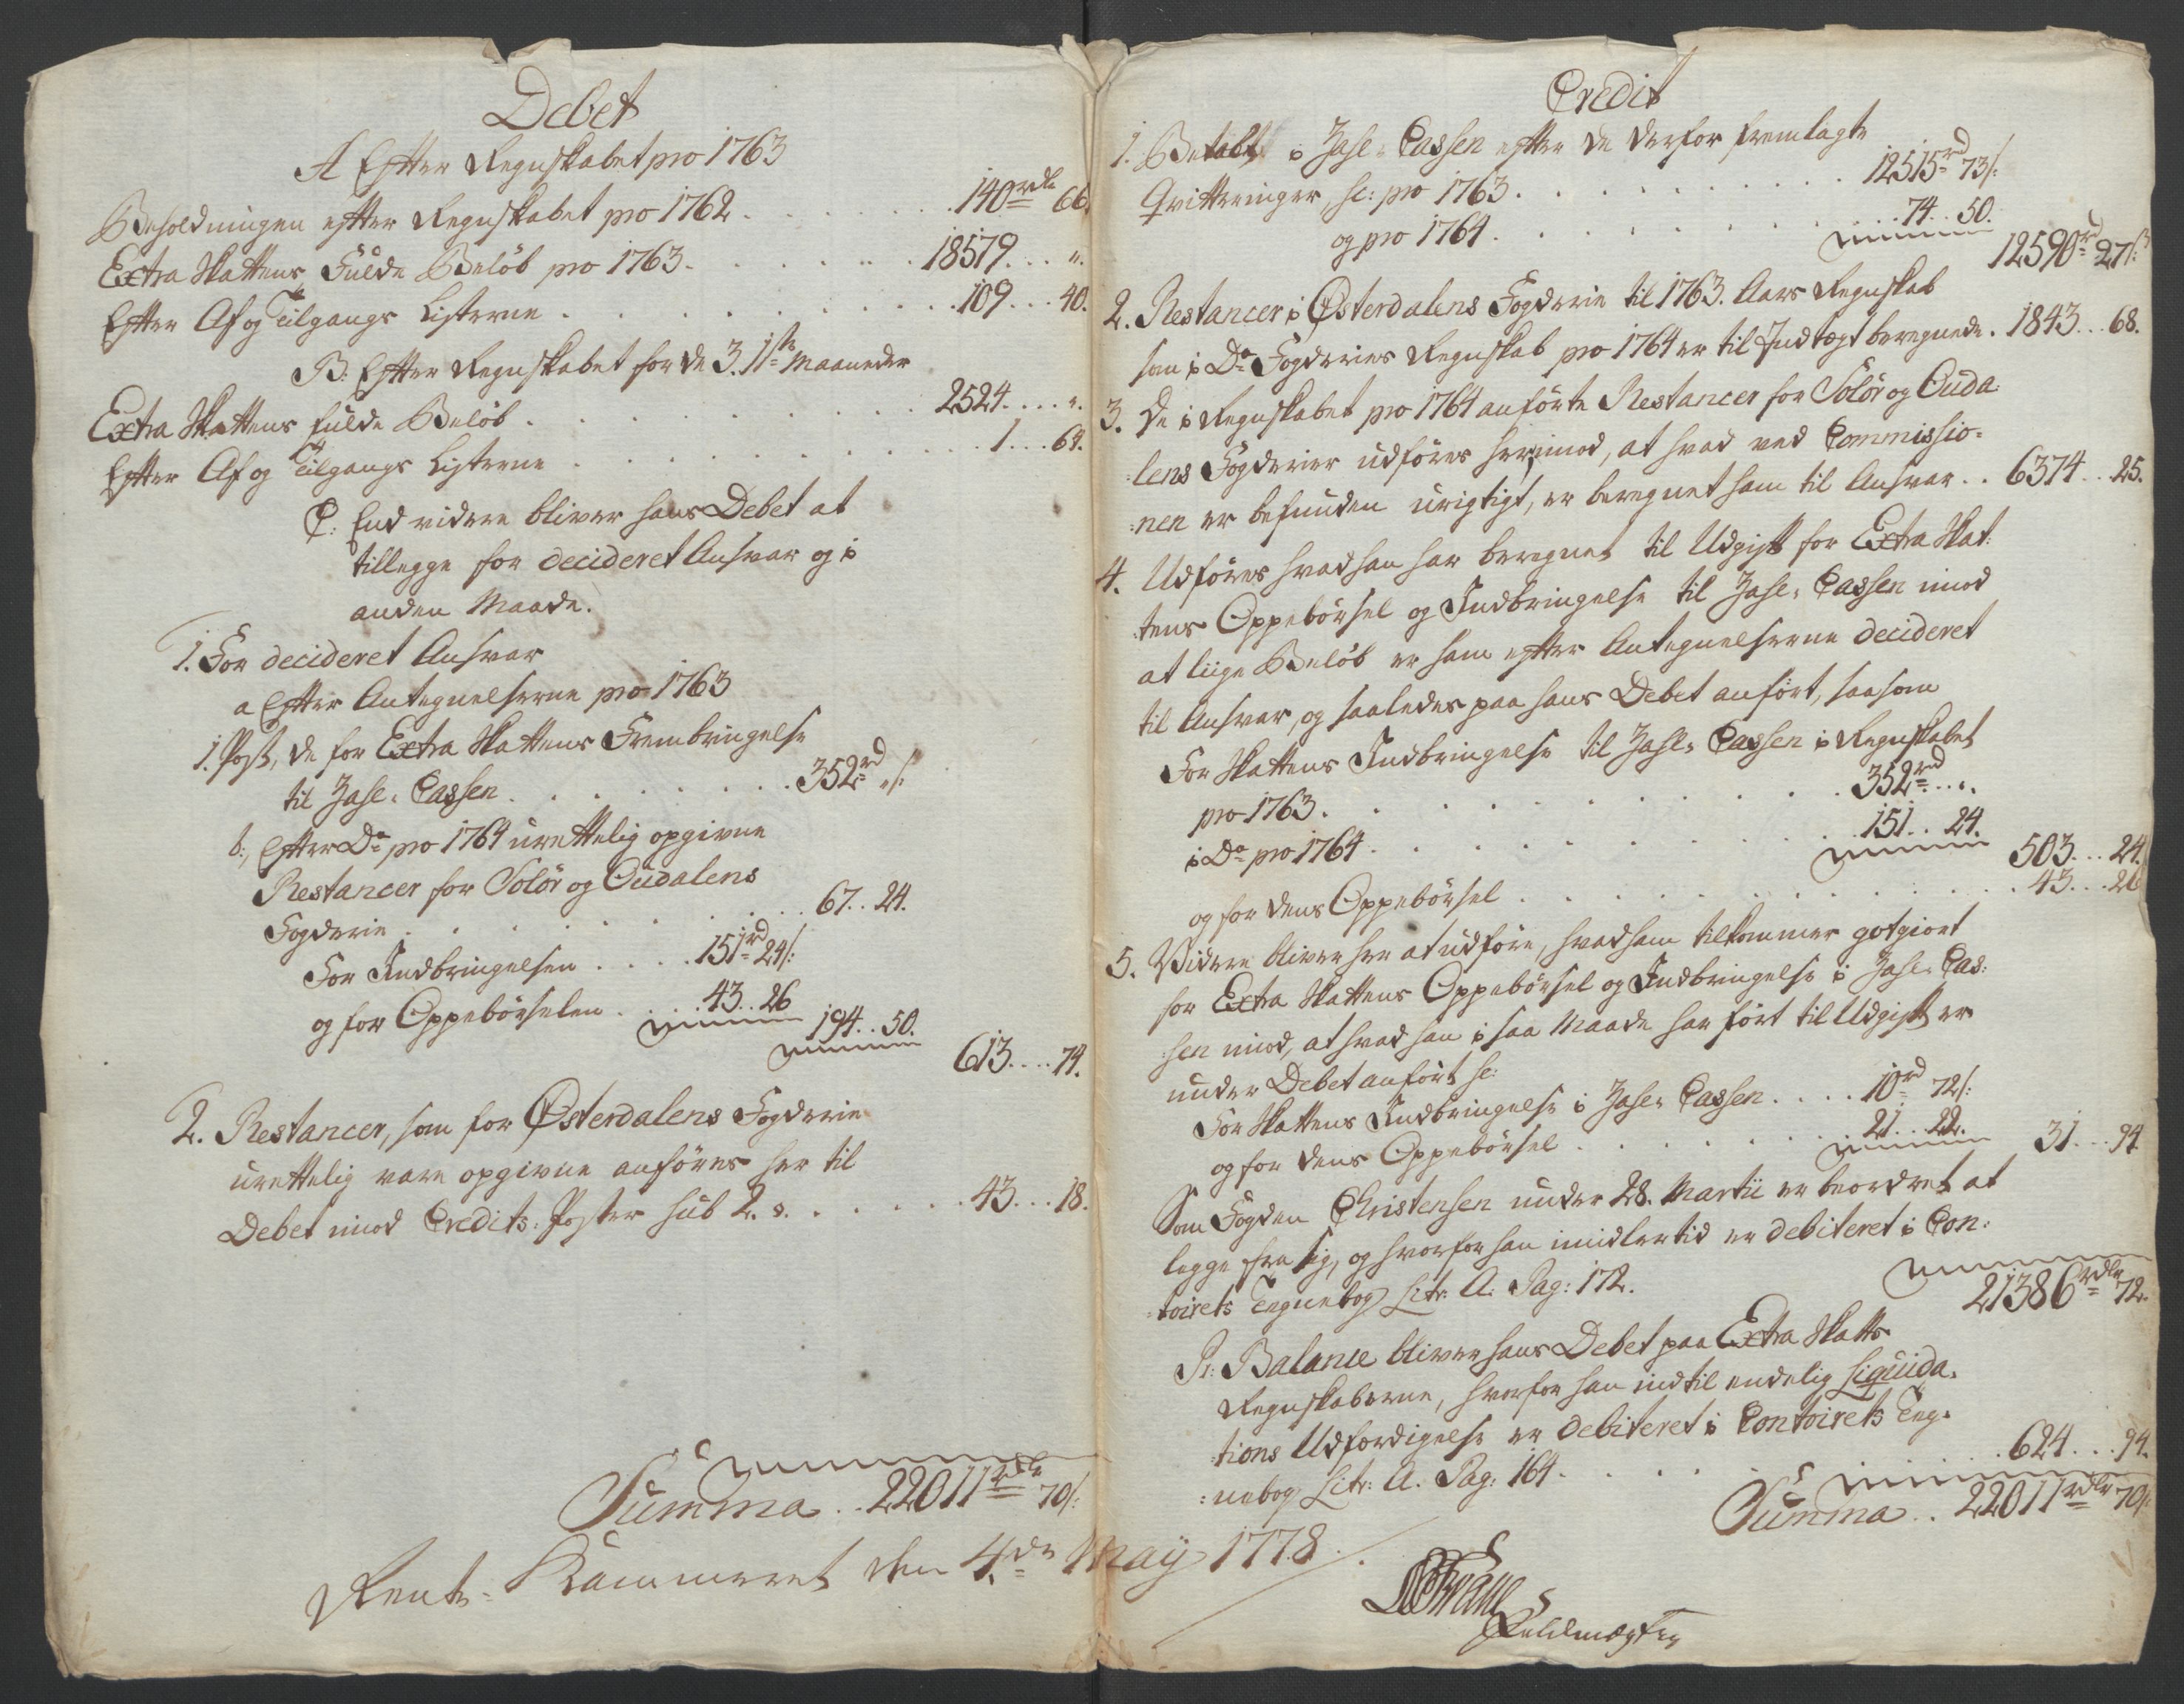 Debet
A Efter Regnskabet pro 1763
Beholdningen efter Regnskabet pro 1762 . . . . . . . 140rdlr 66.
Extra Skattens Fulde Beløb pro 1763 . . . . . . 18579 . . . ".
Efter Af og Tilgangs Listerne . . . . . . . . . 109 . . . 40.
B: Efter Regnskabet for de 3. 1ste Maaneder
Extra Skattens fulde Beløb . . . . . . . . . 2524 . . . . ".
Efter Af og Tilgangs Listerne . . . . . . . . . 1 . . . 64.
C: End videre bliver hans Debet at
tillegge for decideret Ansvar og i
anden Maade.
1. For decideret Ansvar
a Efter Antegnelserne pro 1763
1. Post, de for Extra Skattens Frembringelse
til Zahl-Cassen . . . . . . . . 352rd " s:
b, Efter Do pro 1764 urettelig opgivne
Restancer for Solör og Oudalens
Fogderie . . . . . . . . 67 . . 24.
For Indbringelsen . . . . 151rd 24s:
og for Oppebörselen . . . 43 . . 26
194 . . 50.
613 . . . . 74.
2. Restancer, som for Østerdalens Fogderie
urettelig vare opgivne anføres her til
Debet imod Credits-Poster sub 2. . . . . . . 43 . . . 18.
Summa . . 22011rdlr 70s:
Rente-Kammeret den 4de May 1778.
Credit
1. Betalt i Zahl-Cassen efter de derfor fremlagte
Qvitteringer, sc: pro 1763 . . . . . . . . . . 12515rd 73s:
og pro 1764 . . . . . . . . . 74 . . 50.
12590rd 27s:
2. Restancer i Østerdalens Fogderie til 1763. Aars Regnskab
som i Do Fogderies Regnskab pro 1764 er til Indtægt beregnede . 1843 . . . 68.
3. De i Regnskabet pro 1764 anførte Restancer for Solör og Ouda
:lens Fogderier udføres herimod, at hvad ved Commissio-
:nen er befunden urigtigt, er beregnet ham til Ansvar . . 6374 . . 25.
4. Udføres hvad han har beregnet til Udgift for Extra Skat-
:tens Oppebörsel og Indbringelse til Zahl-Cassen imod
at liige Beløb er ham efter Antegnelserne decideret
til Ansvar, og saaledes paa hans Debet anført, saasom
For Skattens Indbringelse til Zahl-Cassen i Regnskabet
pro 1763 . . . . . . . . . . . 352rd . . ".
i Do pro 1764 . . . . . . . . . . 151 . . 24.
503 . . . 24.
og for dens Oppebörsel . . . . . . . . . . . 43 . . . 26
5. Videre bliver her at udføre, hvad ham tilkommer gotgiort
for Extra Skattens Oppebörsel og Indbringelse i Zahl-Cas-
:sen imod, at hvad han i saa Maade har ført til Udgift er
under Debet anført sc:
For Skattens Indbringelse i Zahl-Cassen . . . . 10rd 72s:
og for dens Oppebörsel . . . . . . . 21 . . 22.
31 . . . 94.
Som Fogden Christensen under 28. Martii er beordret at
legge fra sig, og hvorfor han imidlertid er debiteret i Con-
:toirets Tegnebog Litr: A. Pag: 172.
21386rdlr 72.
Pr: Balance bliver hans Debet paa Extra Skatts
Regnskaberne, hvorfor han indtil endelig Liquida-
:tions Udfærdigelse er debiteret i Contoirets Teg-
:nebog Litr: A. Pag: 164 . . . . . . . . 624 . . . 94.
Summa . . 22011rdlr 70s: